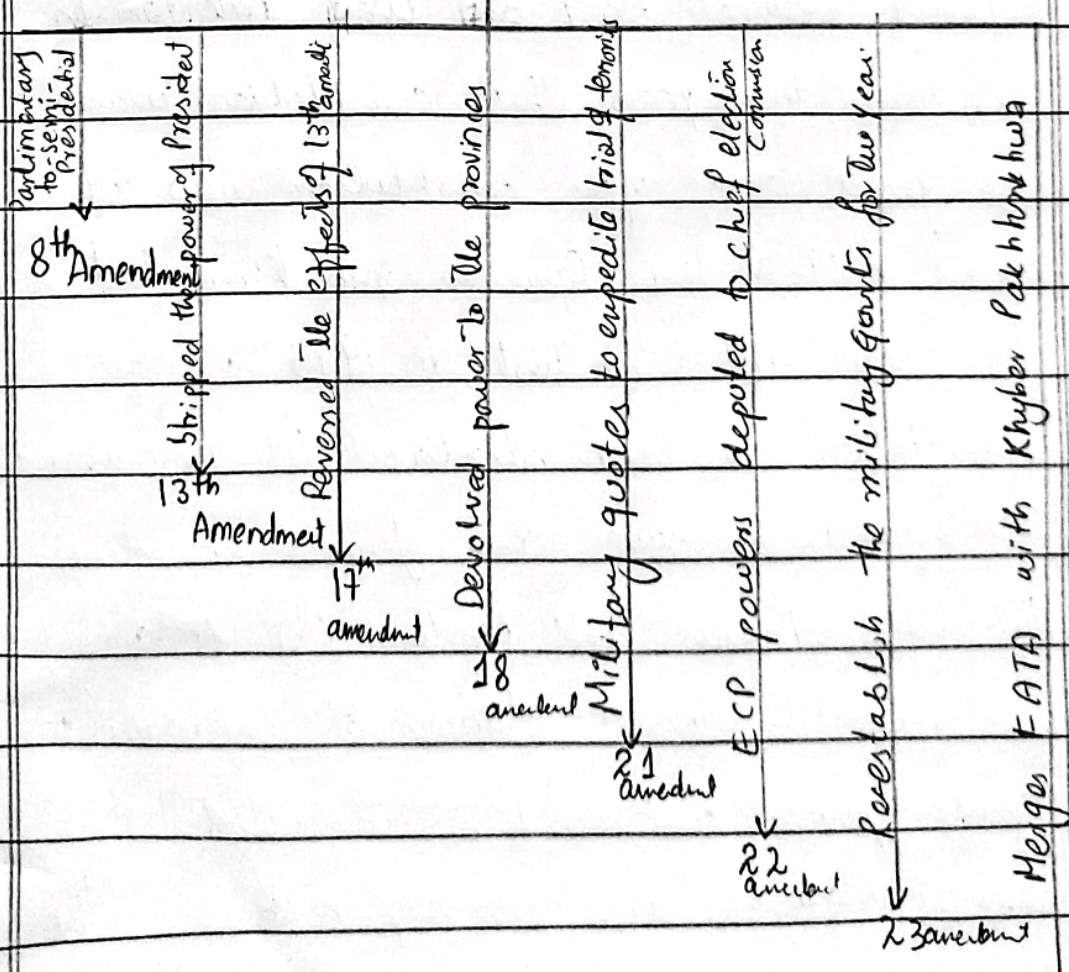 Parlimentary
to-semi-
Presidential
8th Amendment
Stripped the power of President
13th
Amendment
Reversed the effects of 13th
17th
amendmt
Devolved power to the provinces
18
Military quotes to expedite trial of
21
ECP powers deputed to chief election
Commision
22
Reestablish the military Courts for two year
23
Merges FATA with Khyber Pakhhunkhwa